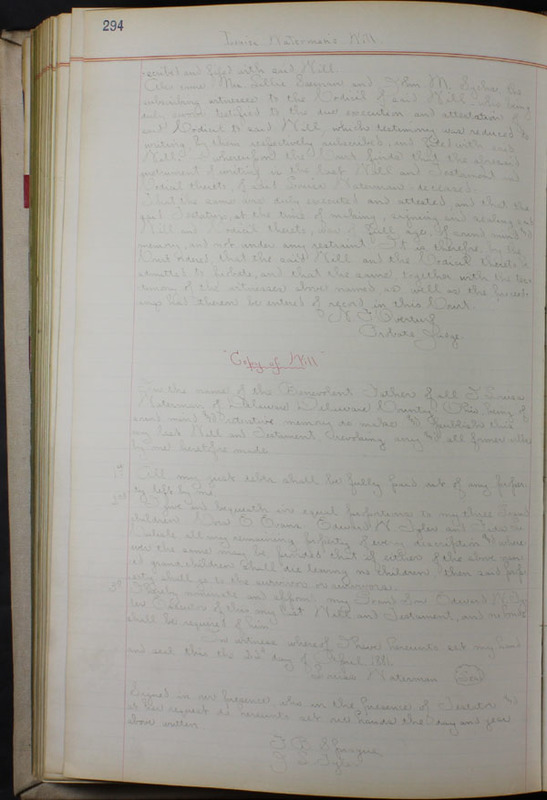 294
Louisa Waterman's Will
scribed and filed with said Will.
Also came Mrs. and John M. the
subscribing witnesses to the Codicil of said Will who being
duly sworn testified to the due execution and attestation of
said Codicil to said Will, which testimony was reduced to
writing, by them respectively subscribed, and filed with said
Will. Whereupon the Court finds that the aforesaid
instrument of writing is the last Will and Testament and
Codicil thereto, of said Louisa Waterman deceased.
That the same were duly executed and attested, and that the
said Testatrix, at the time of making, signing and sealing said
Will and Codicil thereto, was of full age, of sound mind &
memory, and not under any restraint. It is therefore by the
Court ordered, that the said Will and the Codicil thereto be
admitted to Probate, and that the same together with the testi-
mony of the witnesses above named as well as the proceed-
ings had thereon be entered of record in this Court.
Probate Judge
"Copy of Will"
In the name of the Benevolent Father of all I Louisa
Waterman of Delaware Delaware County Ohio being of
sound mind & memory do make & publish this
my last Will and Testament revoking any & all former wills
by me heretofore made.
1st All my just debts shall be fully paid out of any proper-
ty left by me.
2nd I give and bequeath in equal proportions to my three grand
children Edward N. Tyler and
all my remaining property of every description & where
ever the same may be, provided that if either of the above nam-
ed grandchildren shall die leaving no children, then said prop-
erty shall go to the survivor or survivors.
3rd I hereby nominate and appoint my Grand Son Edward N. Ty-
ler Executor of this my last Will and Testament, and no bond
shall be required of him.
In witness whereof I have hereunto set my hand
and seal this the day of April 1881
Louisa Waterman Seal
Signed in our presence, who in the presence of Testator &
at her request do hereunto set our hands the day and year
above written
Sprague
Tyler